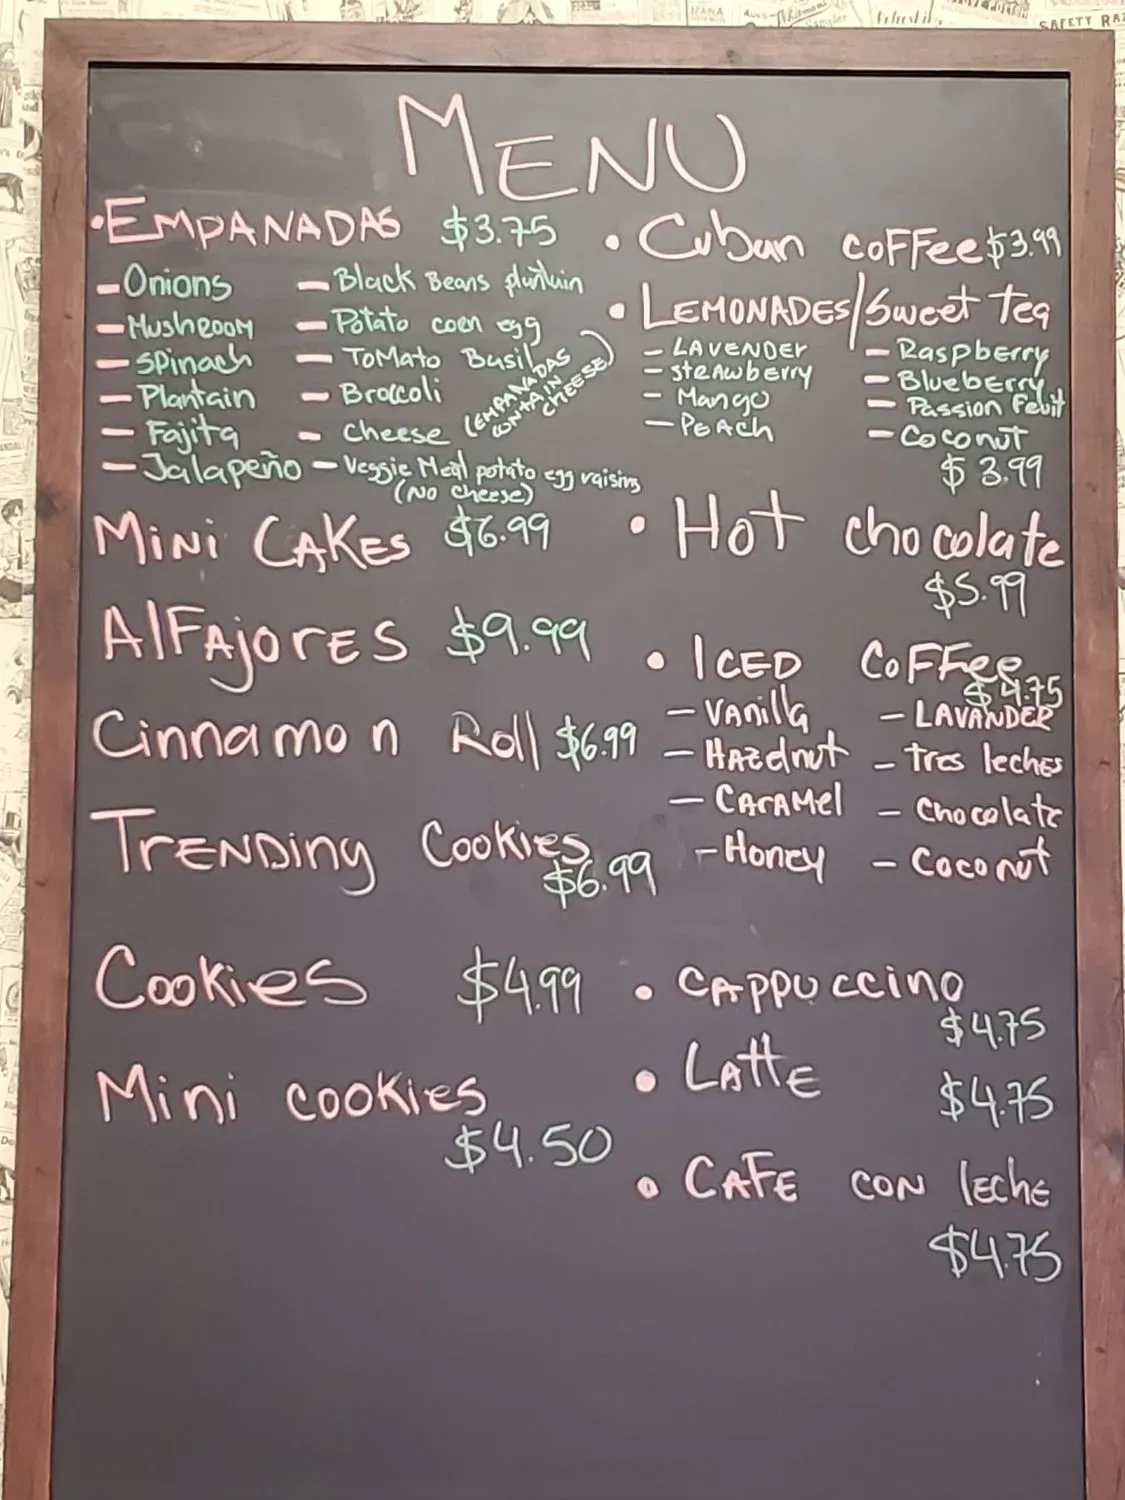 MENU
• EMPANADAS $3.75
- Onions
- Mushroom
- Spinach
- Plantain
- Fajita
- Jalapeño
- Black Beans plantain
- Potato corn egg
- ToMato Basil
- Broccoli
- cheese
(EMPANADAS CONTAIN CHEESE)
- Veggie Meal potato egg raising
(No cheese)
Mini CAKES $6.99
AlFAjorES $9.99
Cinnamon Roll $6.99
TrENDing Cookies
$6.99
Cookies $4.99
Mini cookies
$4.50
• Cuban coffee $3.99
• LEMONADES/Sweet Tea
- LAVENDER
- strawberry
- Mango
- PEACH
- Raspberry
- Blueberry
- Passion Fruit
- Coconut
$3.99
• Hot chocolate
$5.99
• ICED Coffee
$4.75
- Vanilla
- HAzelnut
- CArAMel
- Honey
- LAVANDER
- tres leches
- Chocolate
- Coconut
• CAppuccino
$4.75
• LAttE
$4.75
• CAFE CON lechE
$4.75
SAFETY RAZ